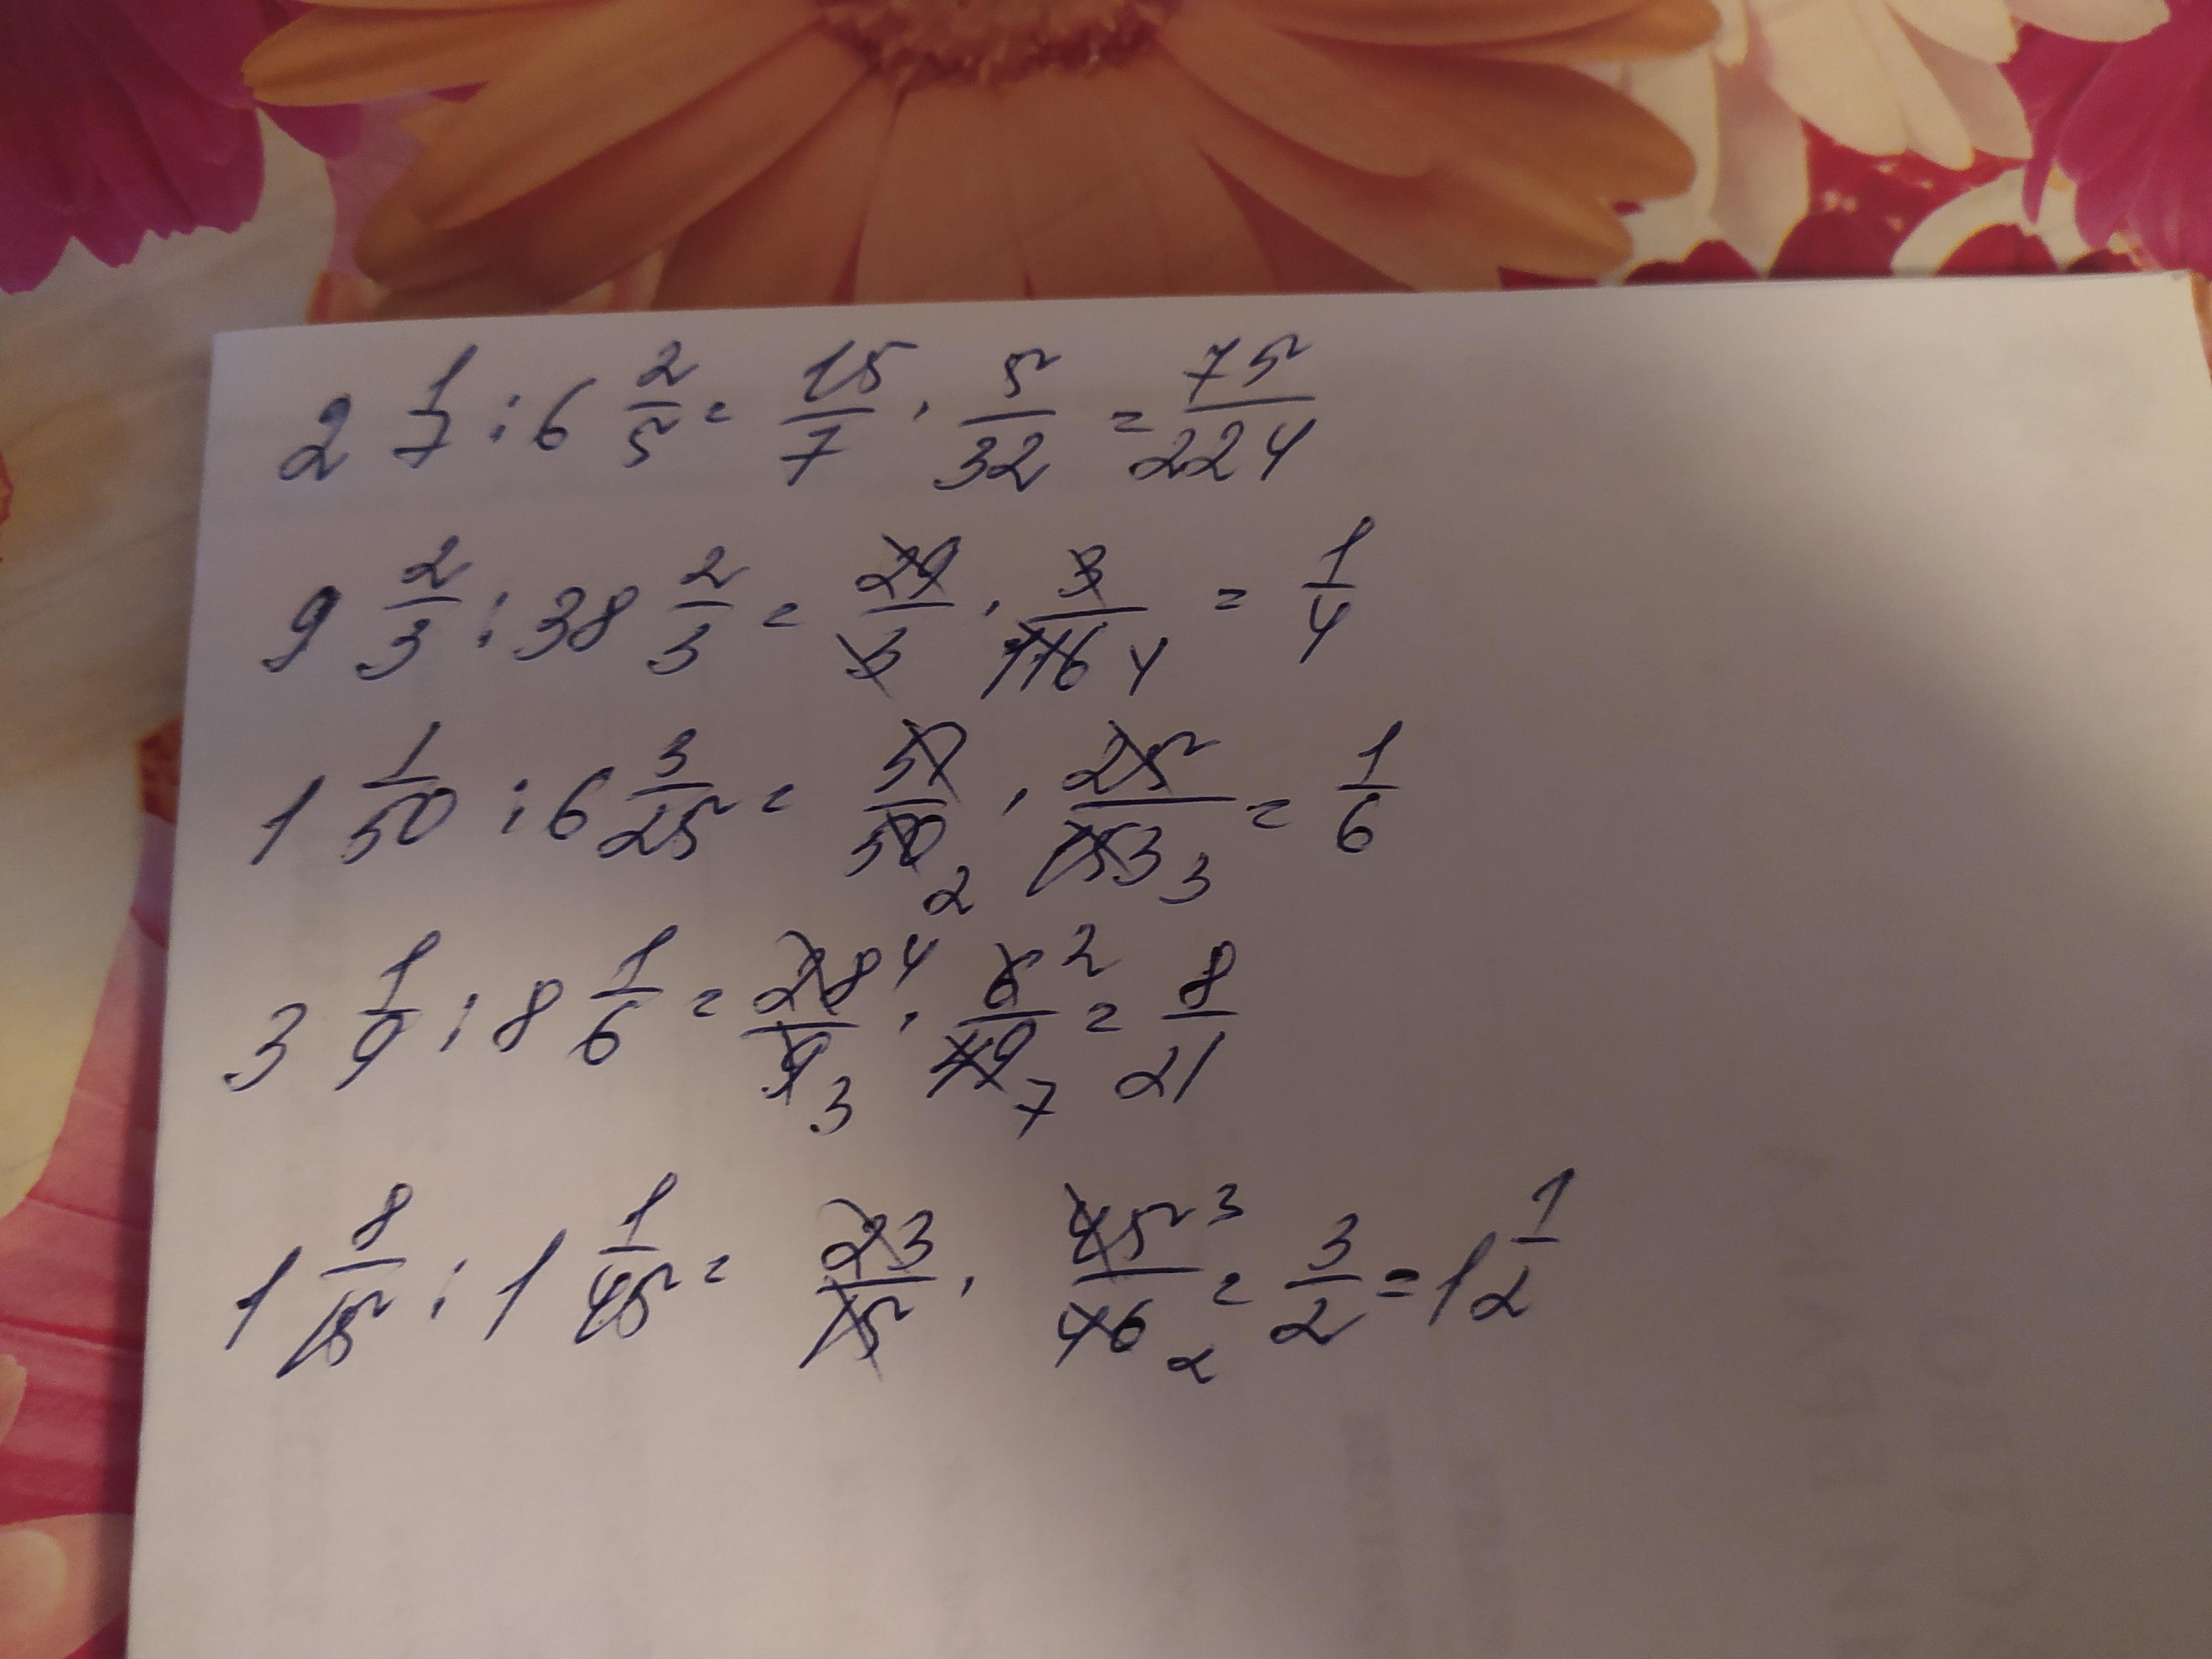 2 1/7 : 6 2/5 = 15/7 · 5/32 = 75/224
9 2/3 : 38 2/3 = 29/3 · 3/116 4 = 1/4
1 1/50 : 6 3/25 = 51/50 2 · 25/153 3 = 1/6
3 1/9 : 8 1/6 = 28 4/9 3 · 6 2/49 7 = 8/21
1 8/15 : 1 1/45 = 23/15 · 45 3/46 2 = 3/2 = 1 1/2